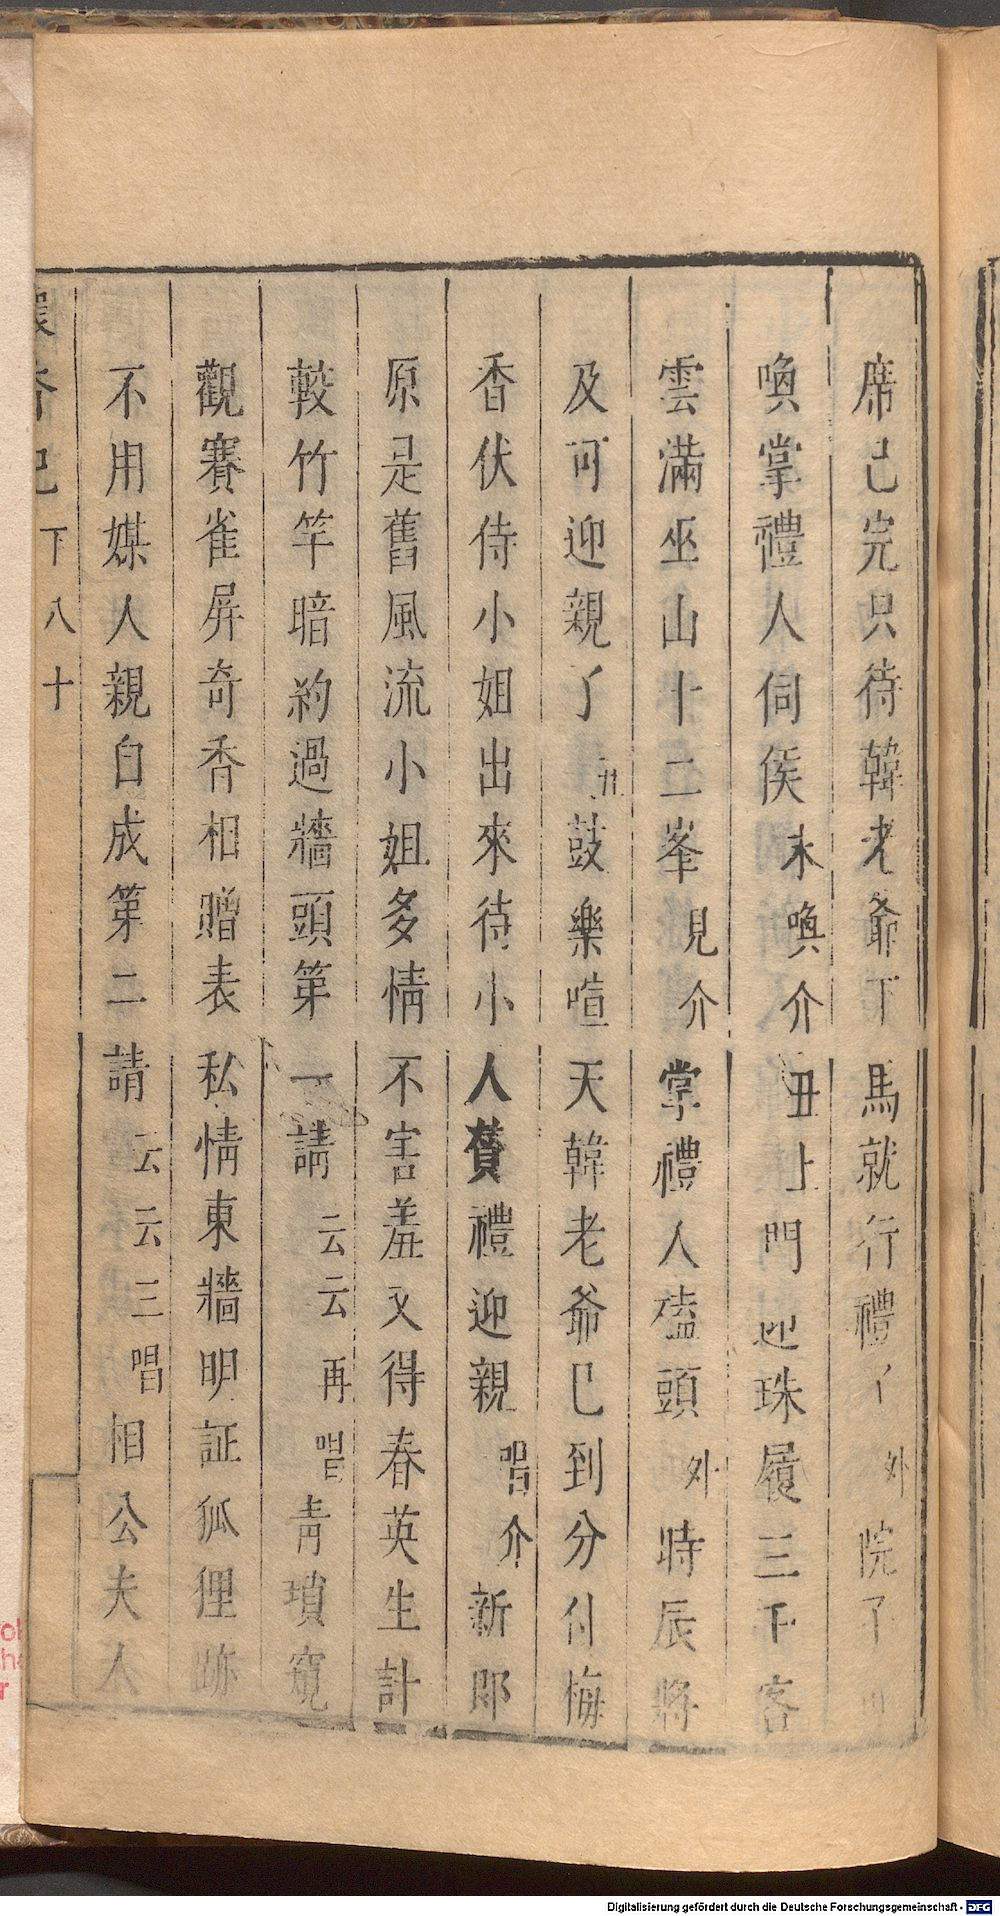 席已完只待韓老爺下馬就行禮了外院子可
喚掌禮人伺侯末喚介丑上門迎珠履三千客
雲滿巫山十二峯見介掌禮人磕頭外時辰將
及可迎親了丑鼓樂喧天韓老爺已到分付梅
香伏侍小姐出來待小人贊禮迎親唱介新郎
原是舊風流小姐多情不害羞又得春英生計
較竹竿暗約過牆頭第一請云云再唱青瑣窺
觀賽雀屏奇香相贈表私情東牆明証狐狸跡
不用媒人親自成第二請云云三唱相公夫人
懷香記下八十
Digitalisierung gefördert durch die Deutsche Forschungsgemeinschaft - DFG